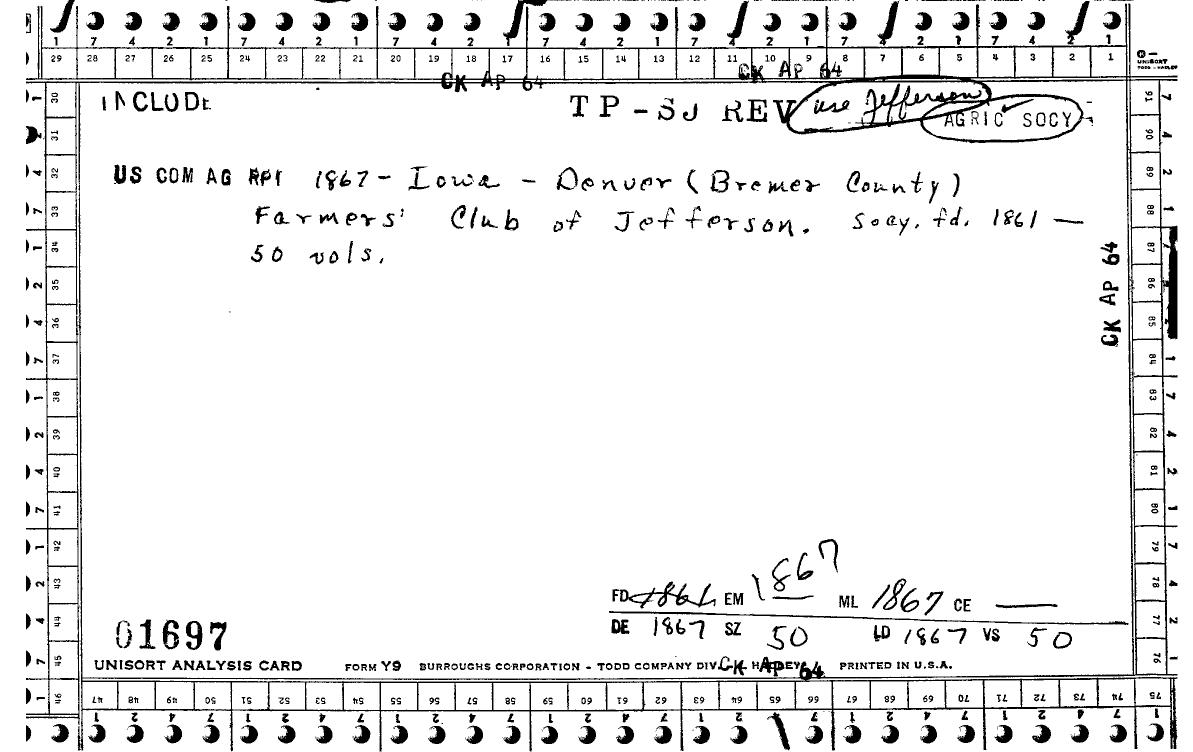 7 4 2 1 7 4 2 1 7 4 2 1 7 4 2 1 7 4 2 1 7 4 2 1 7 4 2 1
29 28 27 26 25 24 23 22 21 20 19 18 17 16 15 14 13 12 11 10 9 8 7 6 5 4 3 2 1
UNISORT
CK AP 64 CK AP 64
INCLUDE TP-SJ REV use Jefferson
AGRIC SOCY
US COM AG RPT 1867 - Iowa - Denver (Bremer County)
Farmers' Club of Jefferson. Socy. fd. 1861 —
50 vols.
CK AP 64
30 31 32 33 34 35 36 37 38 39 40 41 42 43 44 45 46
91 90 89 88 87 86 85 84 83 82 81 80 79 78 77 76 75
FD 1861 EM 1867 ML 1867 CE —
DE 1867 SZ 50 LD 1867 VS 50
01697
UNISORT ANALYSIS CARD FORM Y9 BURROUGHS CORPORATION - TODD COMPANY DIV. CK AP 64 PRINTED IN U.S.A.
47 48 49 50 51 52 53 54 55 56 57 58 59 60 61 62 63 64 65 66 67 68 69 70 71 72 73 74 75